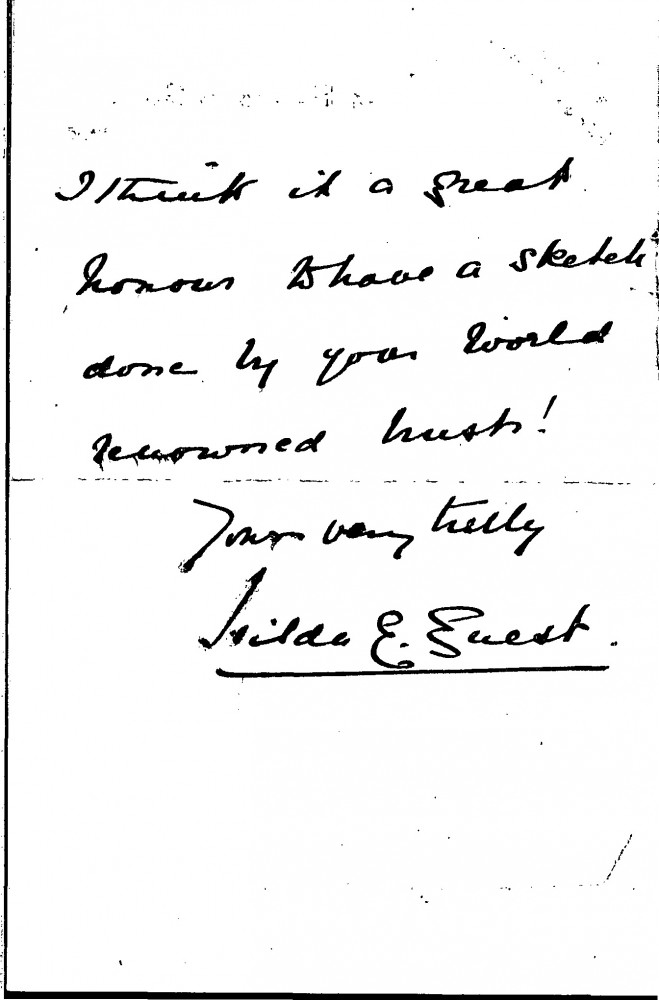 I think it a great
honour to have a sketch
done by your World
renowned
Yours very truly
Hilda E. Guest.